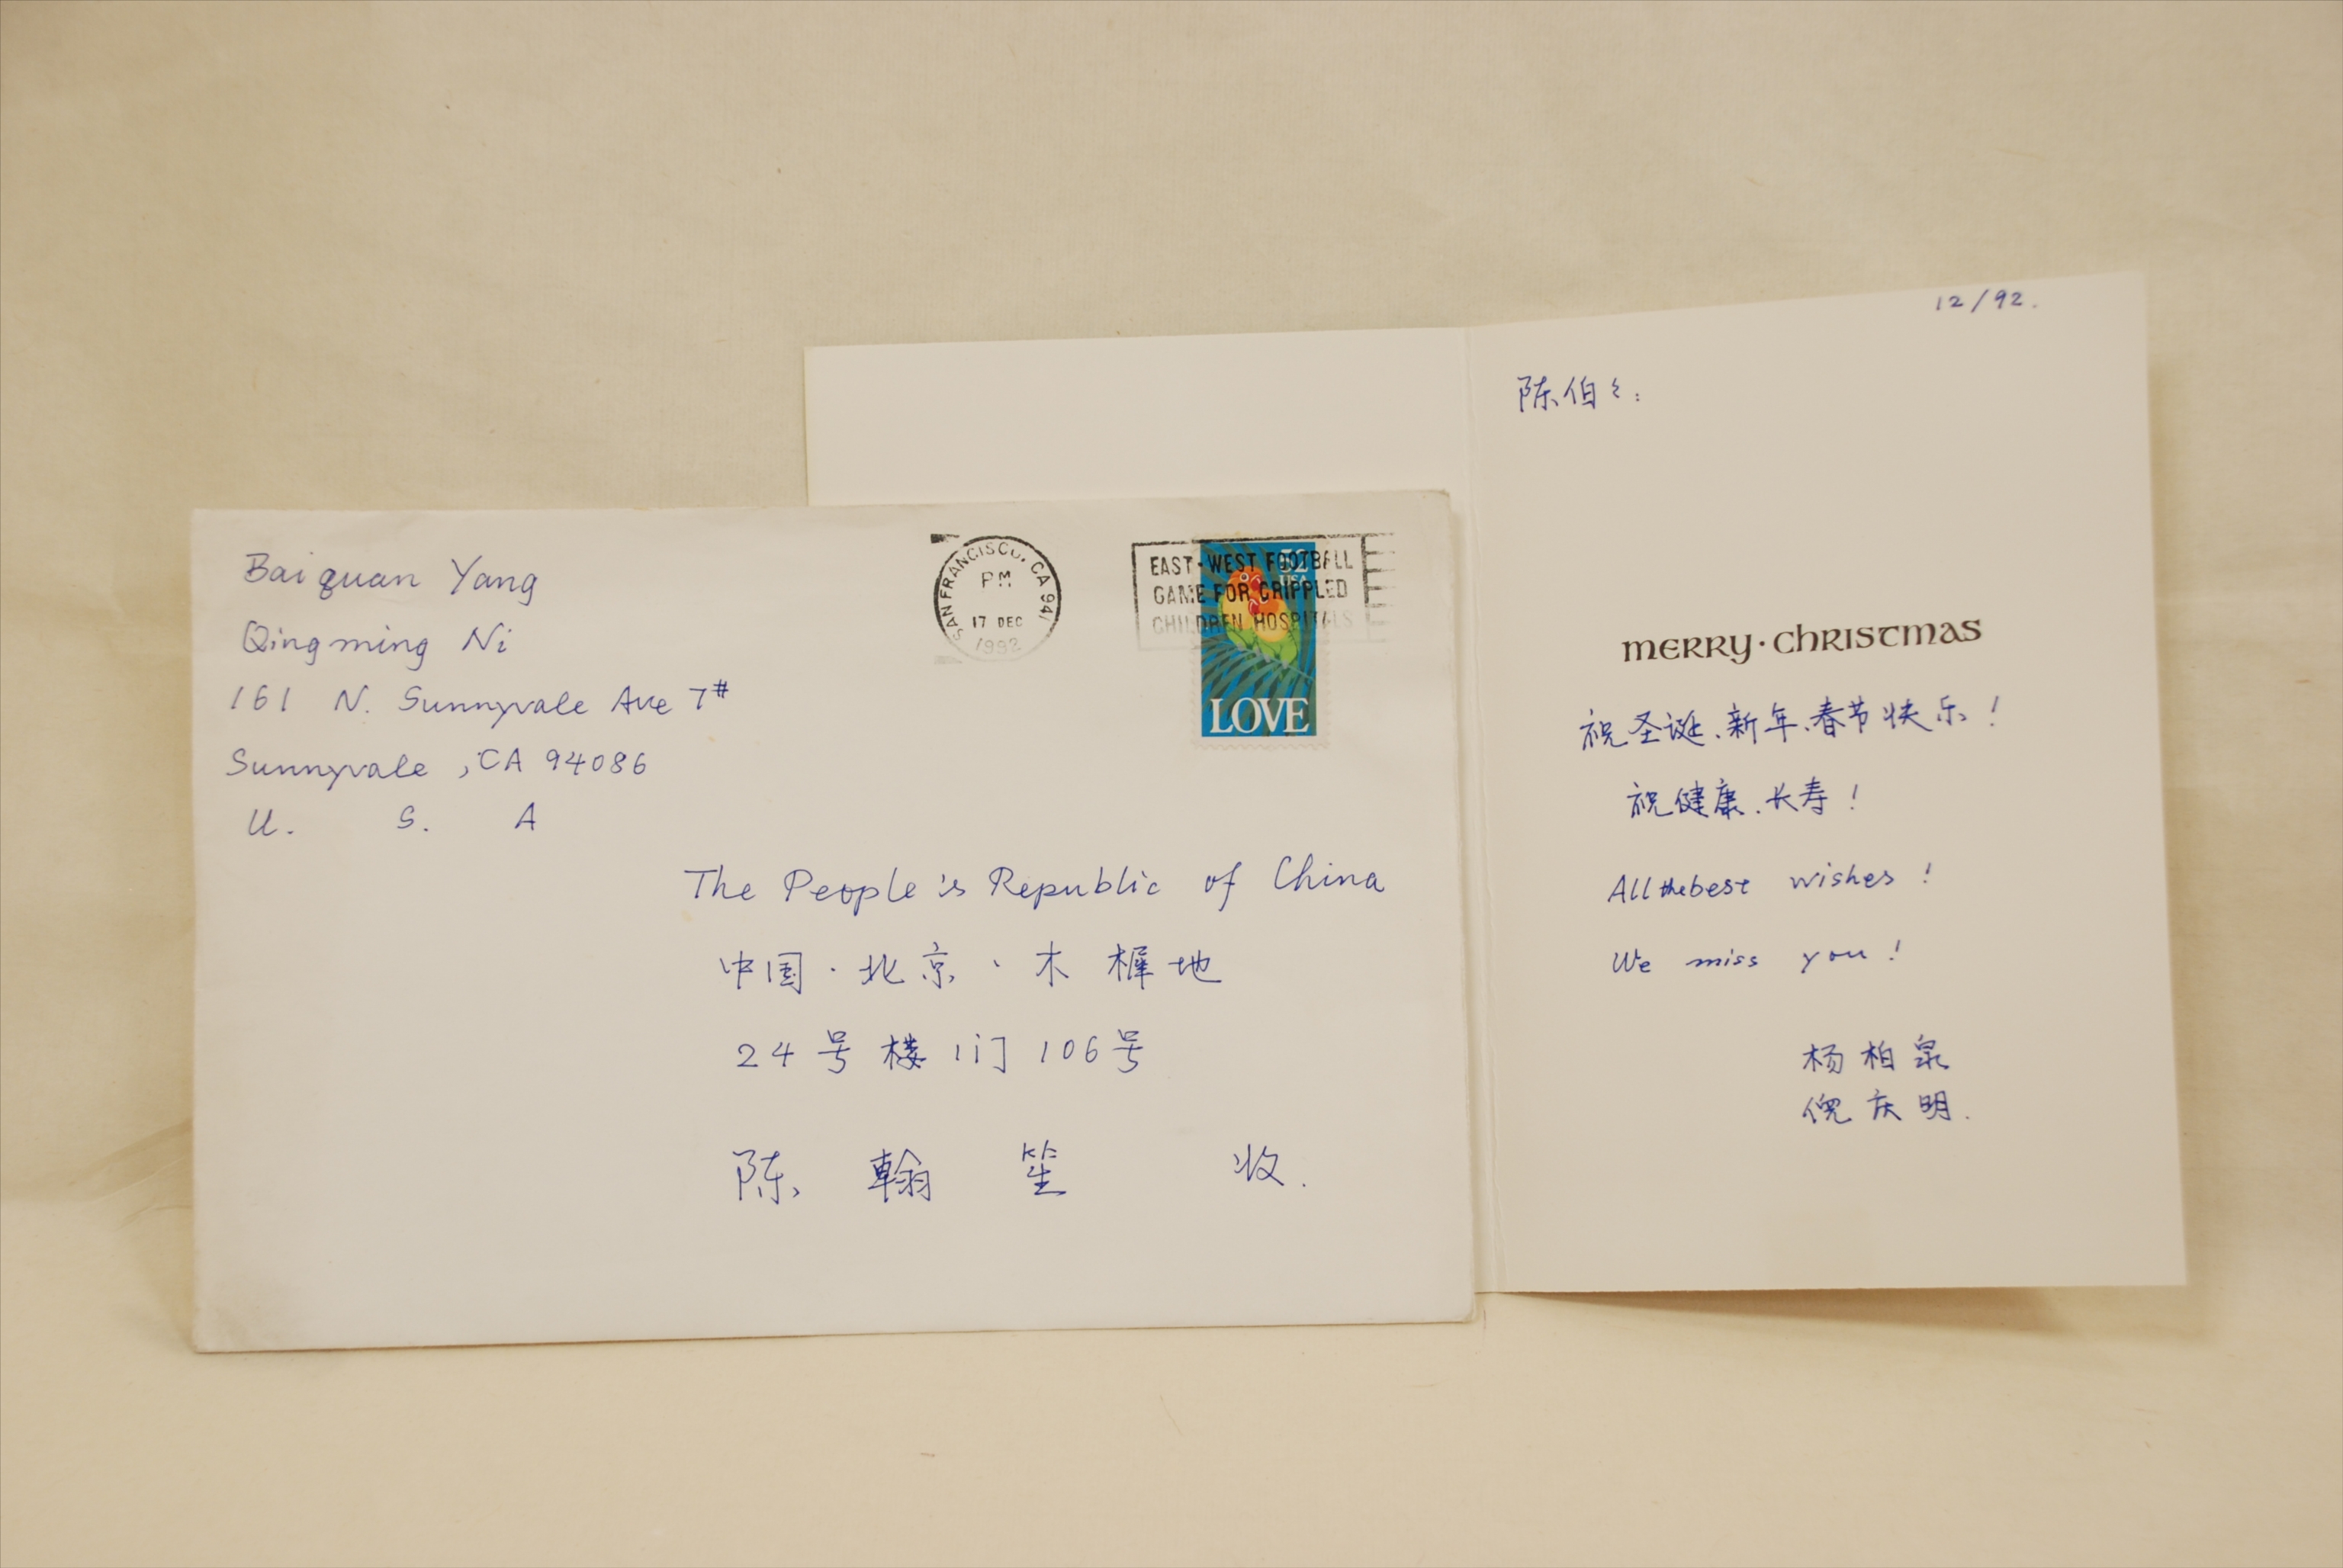 Baiquan Yang
Qingming Ni
161 N. Sunnyvale Ave 7#
Sunnyvale, CA 94086
U. S. A
SAN FRANCISCO, CA 941
PM
17 DEC
1992
EAST-WEST FOOTBALL
GAME FOR CRIPPLED
CHILDREN HOSPITALS
52
USA
LOVE
The People's Republic of China
中国·北京、木樨地
24号楼1门106号
陈翰笙 收.
12/92.
陈伯々:
MERRY·CHRISTMAS
祝圣诞、新年、春节快乐!
祝健康、长寿!
All the best wishes!
We miss you!
杨柏泉
倪庆明.